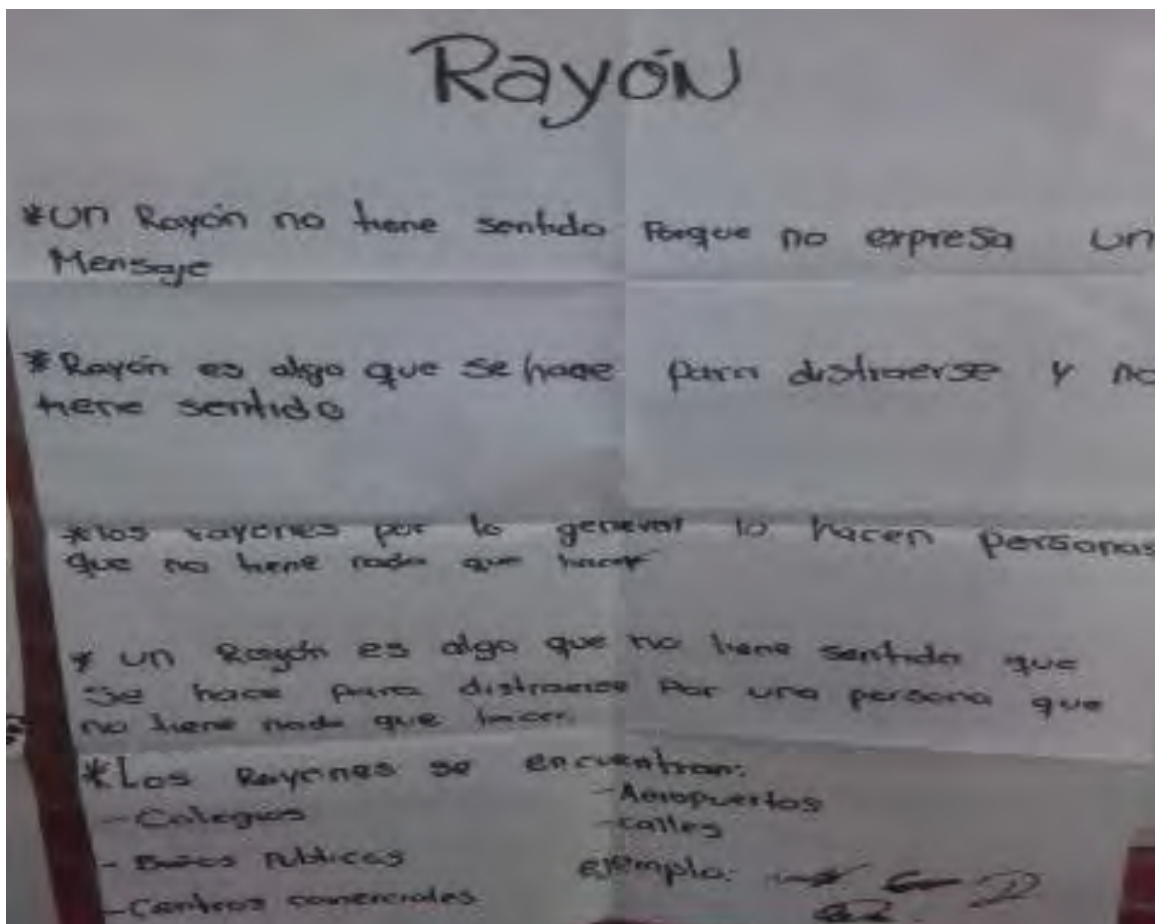 Rayón
*Un Rayón no tiene sentido Porque no expresa un
Mensaje
*Rayón es algo que se hace para distraerse y no
tiene sentido
*los rayones por lo general lo hacen personas
que no tiene nada que hacer
* un Rayón es algo que no tiene sentido que
se hace para distraerse Por una persona que
no tiene nada que hacer.
*Los Rayones se encuentran:
- Colegios
- Baños Publicos
- Centros comerciales
- Aeropuertos
- calles
ejemplo: